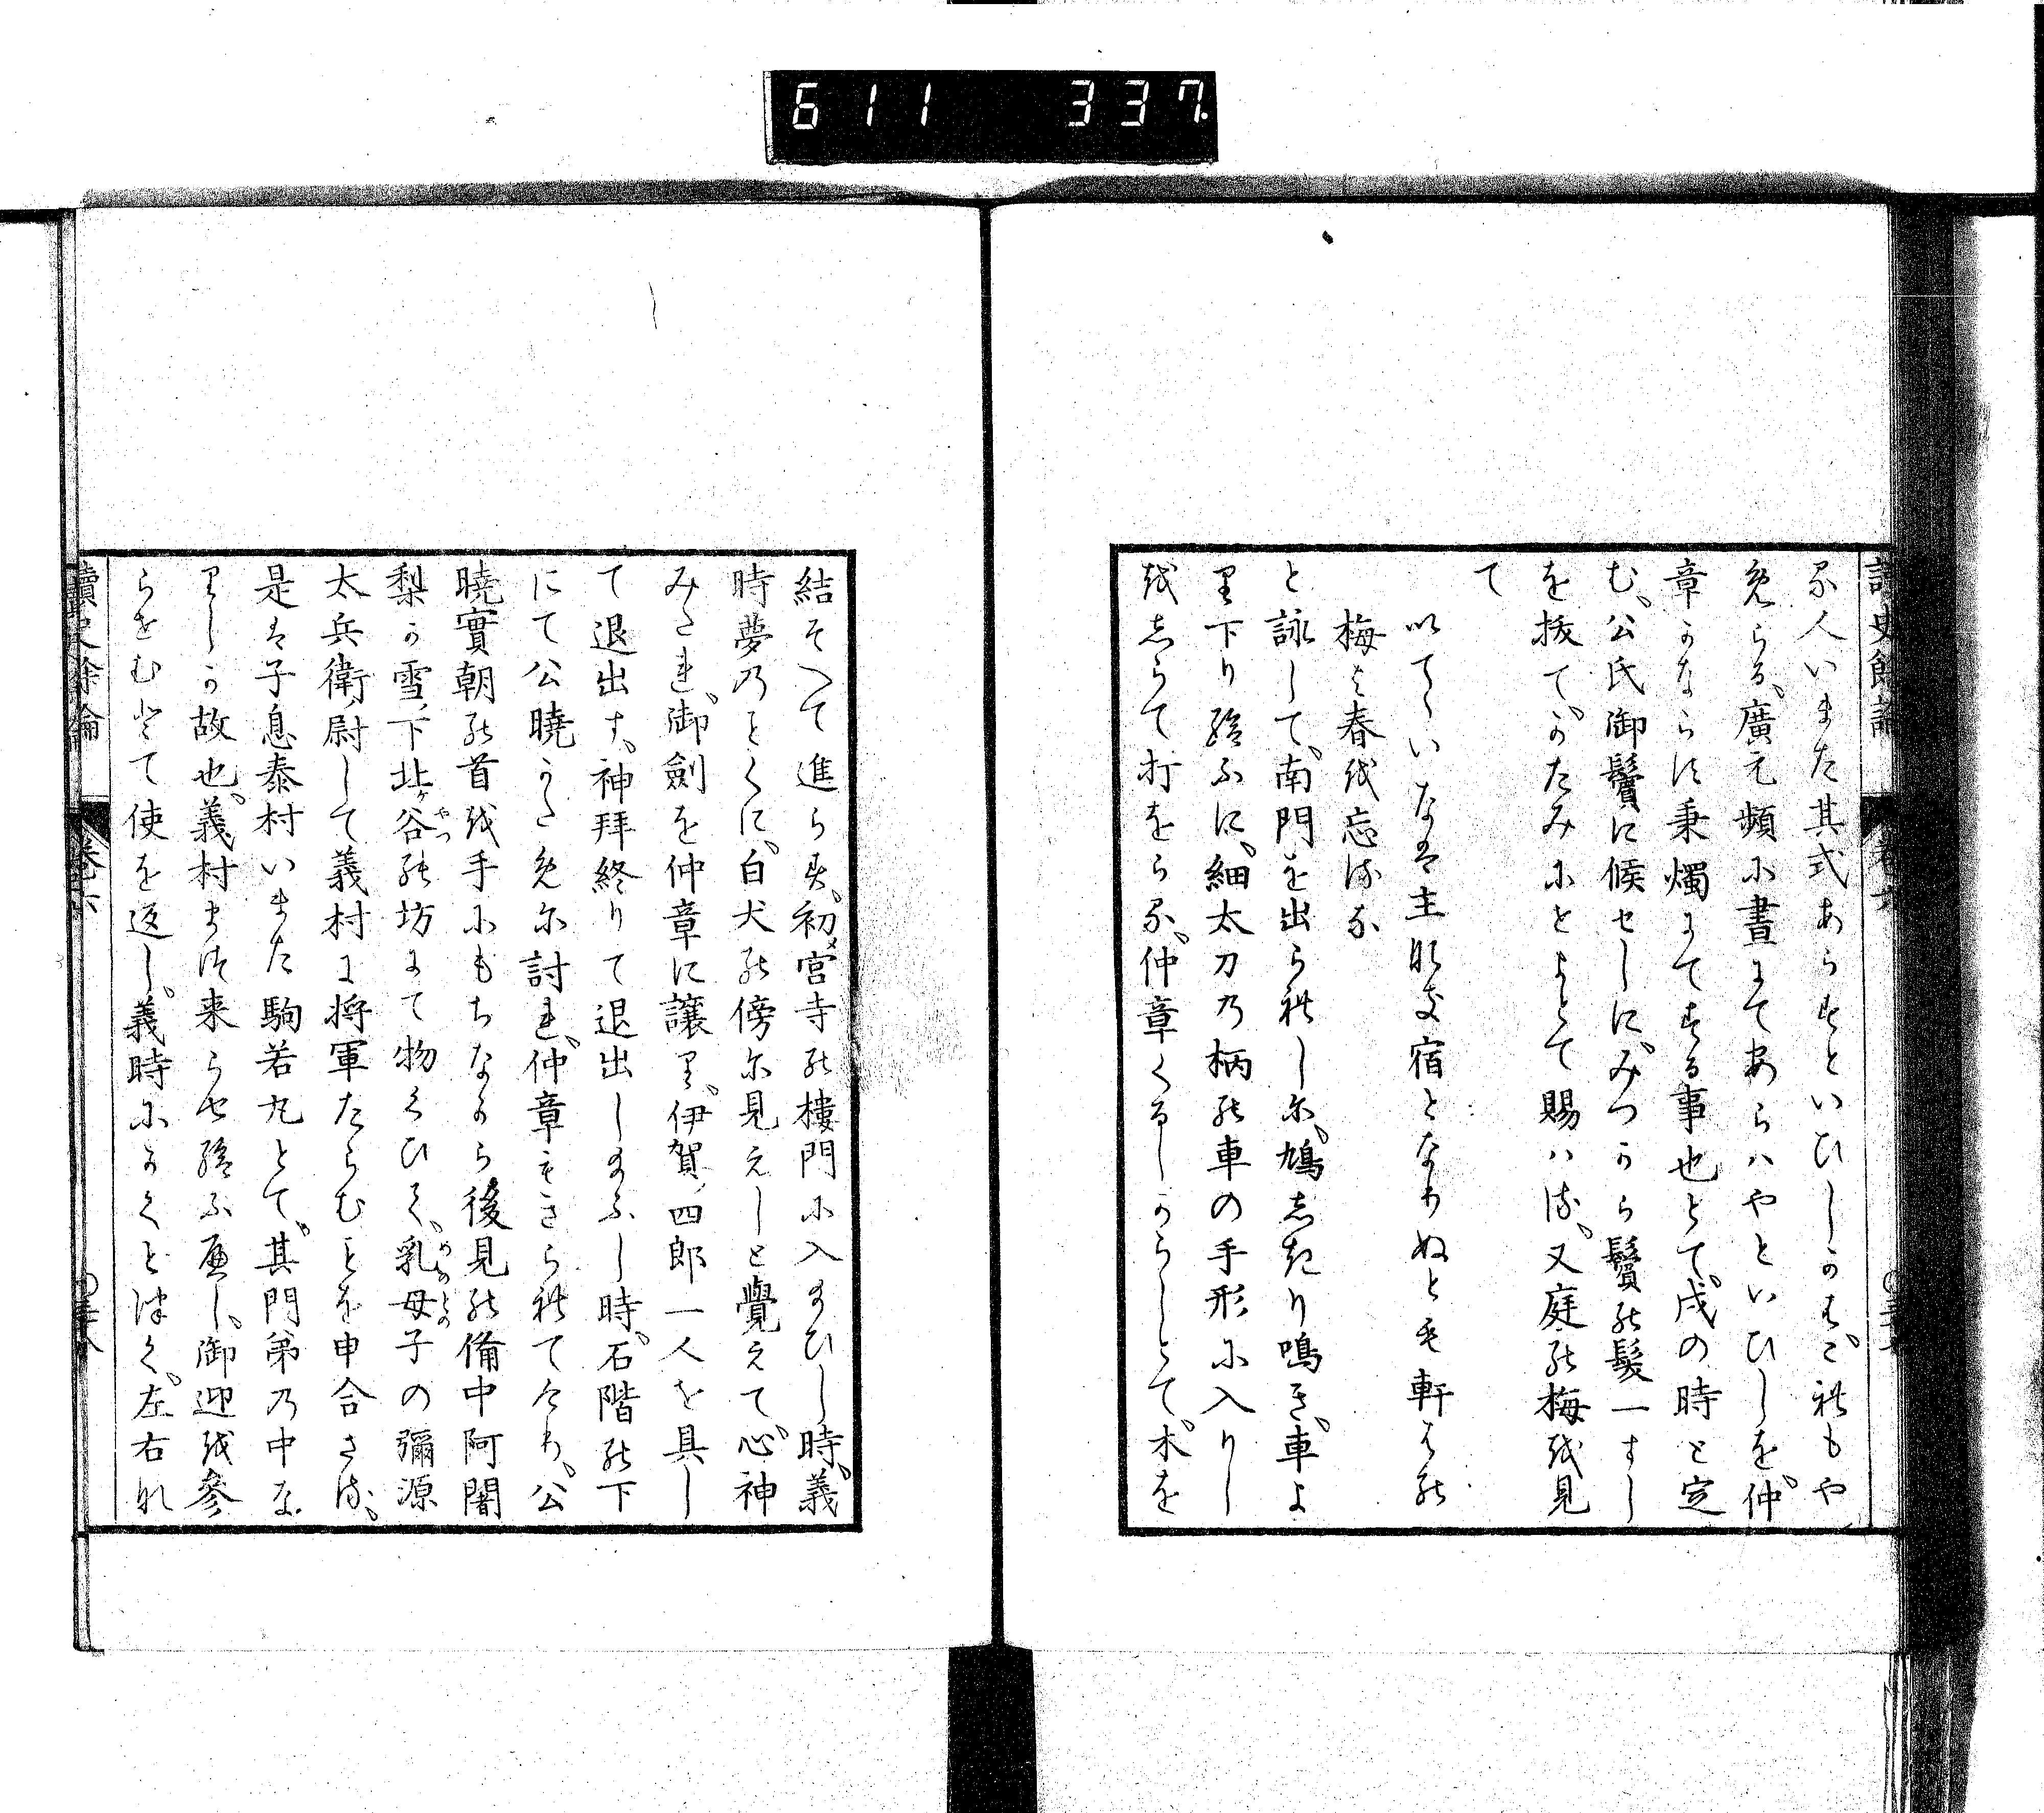 611 337
讀史餘論 卷六
る人いまた其式あらすといひしかは、これもや
めらる、廣元頻に晝にてあらハやといひしを、仲
章かならに秉燭にてする事也とて、戌の時と定
む、公氏御鬢に候せしに、みつから鬢の髮一すし
を拔て、かたみにとよとて賜ハる、又庭の梅を見
て
いてゝいなは主なき宿となりぬとも軒はの
梅よ春を忘るな
と詠して、南門を出られしに、鳩しきり鳴き、車よ
り下り給ふに、細太刀の柄の車の手形に入りし
をしらて打をらる、仲章くるしからしとて、木を
結そへて進らす、初メ宮寺の樓門に入まひし時、義
時夢のことくに、白犬の傍に見えしと覺えて、心神
みたれ、御劍を仲章に讓り、伊賀ノ四郎一人を具し
て退出す、神拜終りて退出しまふし時、石階の下
にて公曉かために討れ、仲章もきられてけり、公
曉實朝の首を手にもちなから後見の備中阿闍
梨か雪ノ下北ヶ谷の坊にて物くひて、乳母子の彌源
太兵衛ノ尉して義村に將軍たらむことを申合さる、
是は子息泰村いまた駒若丸とて、其門弟の中な
りしか故也、義村まつ来らせ給ふへし、御迎を參
らせむとて使を返し、義時にかくとつく、左右な
讀史餘論 卷六 〇三十八